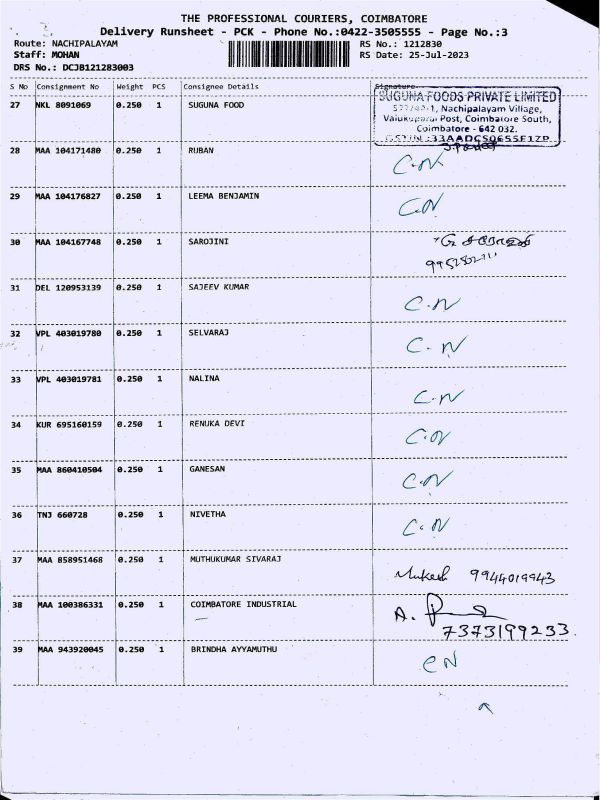 THE PROFESSIONAL COURIERS, COIMBATORE
Delivery Runsheet - PCK - Phone No.:0422-3505555 - Page No.:3
Route: NACHIPALAYAM RS No.: 1212830
Staff: MOHAN RS Date: 25-Jul-2023
DRS No.: DCJB121283003
S No Consignment No Weight PCS Consignee Details Signature
27 NKL 8091069 0.250 1 SUGUNA FOOD
SUGUNA FOODS PRIVATE LIMITED
Nachipalayam Village,
Post, Coimbatore South,
Coimbatore - 642 032.
28 MAA 104171480 0.250 1 RUBAN C.N
29 MAA 104176827 0.250 1 LEEMA BENJAMIN C.N
30 MAA 104167748 0.250 1 SAROJINI
31 DEL 120953139 0.250 1 SAJEEV KUMAR C.N
32 VPL 403019780 0.250 1 SELVARAJ C.N
33 VPL 403019781 0.250 1 NALINA C.N
34 KUR 695160159 0.250 1 RENUKA DEVI C.N
35 MAA 860410504 0.250 1 GANESAN C.N
36 TNJ 660728 0.250 1 NIVETHA C.N
37 MAA 858951468 0.250 1 MUTHUKUMAR SIVARAJ Mukesh 9944019943
38 MAA 100386331 0.250 1 COIMBATORE INDUSTRIAL A.
7373199233.
39 MAA 943920045 0.250 1 BRINDHA AYYAMUTHU CN